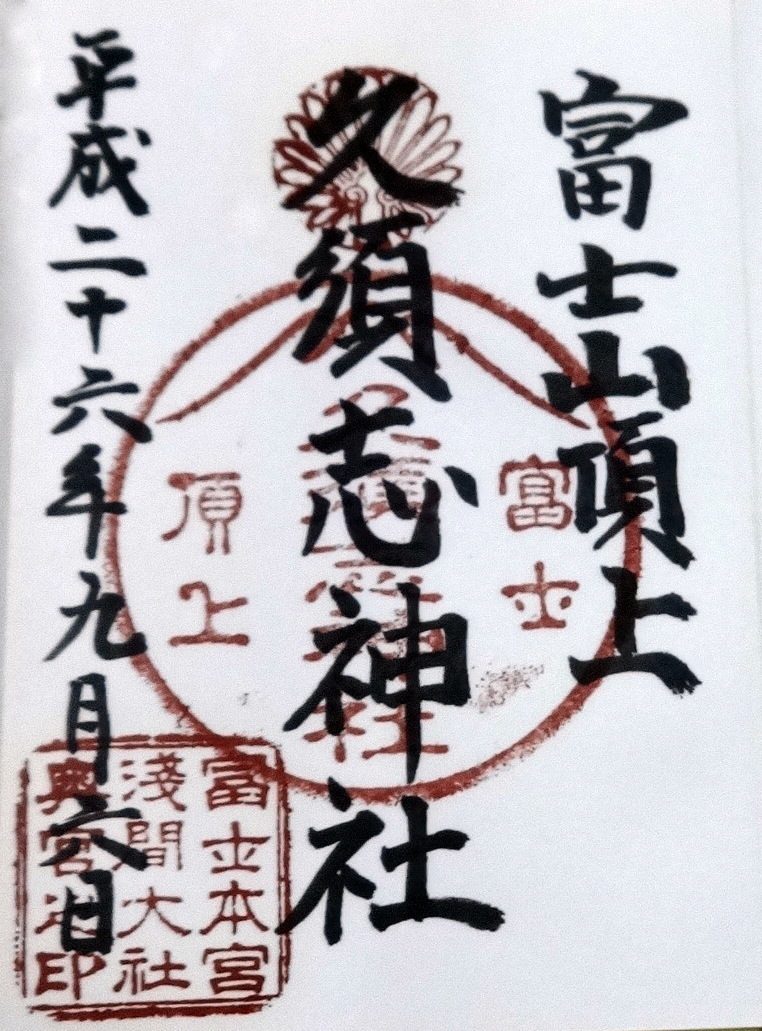 富士山頂上
久須志神社
平成二十六年九月六日
富士
頂上
富士本宮
淺間大社
奥宮之印